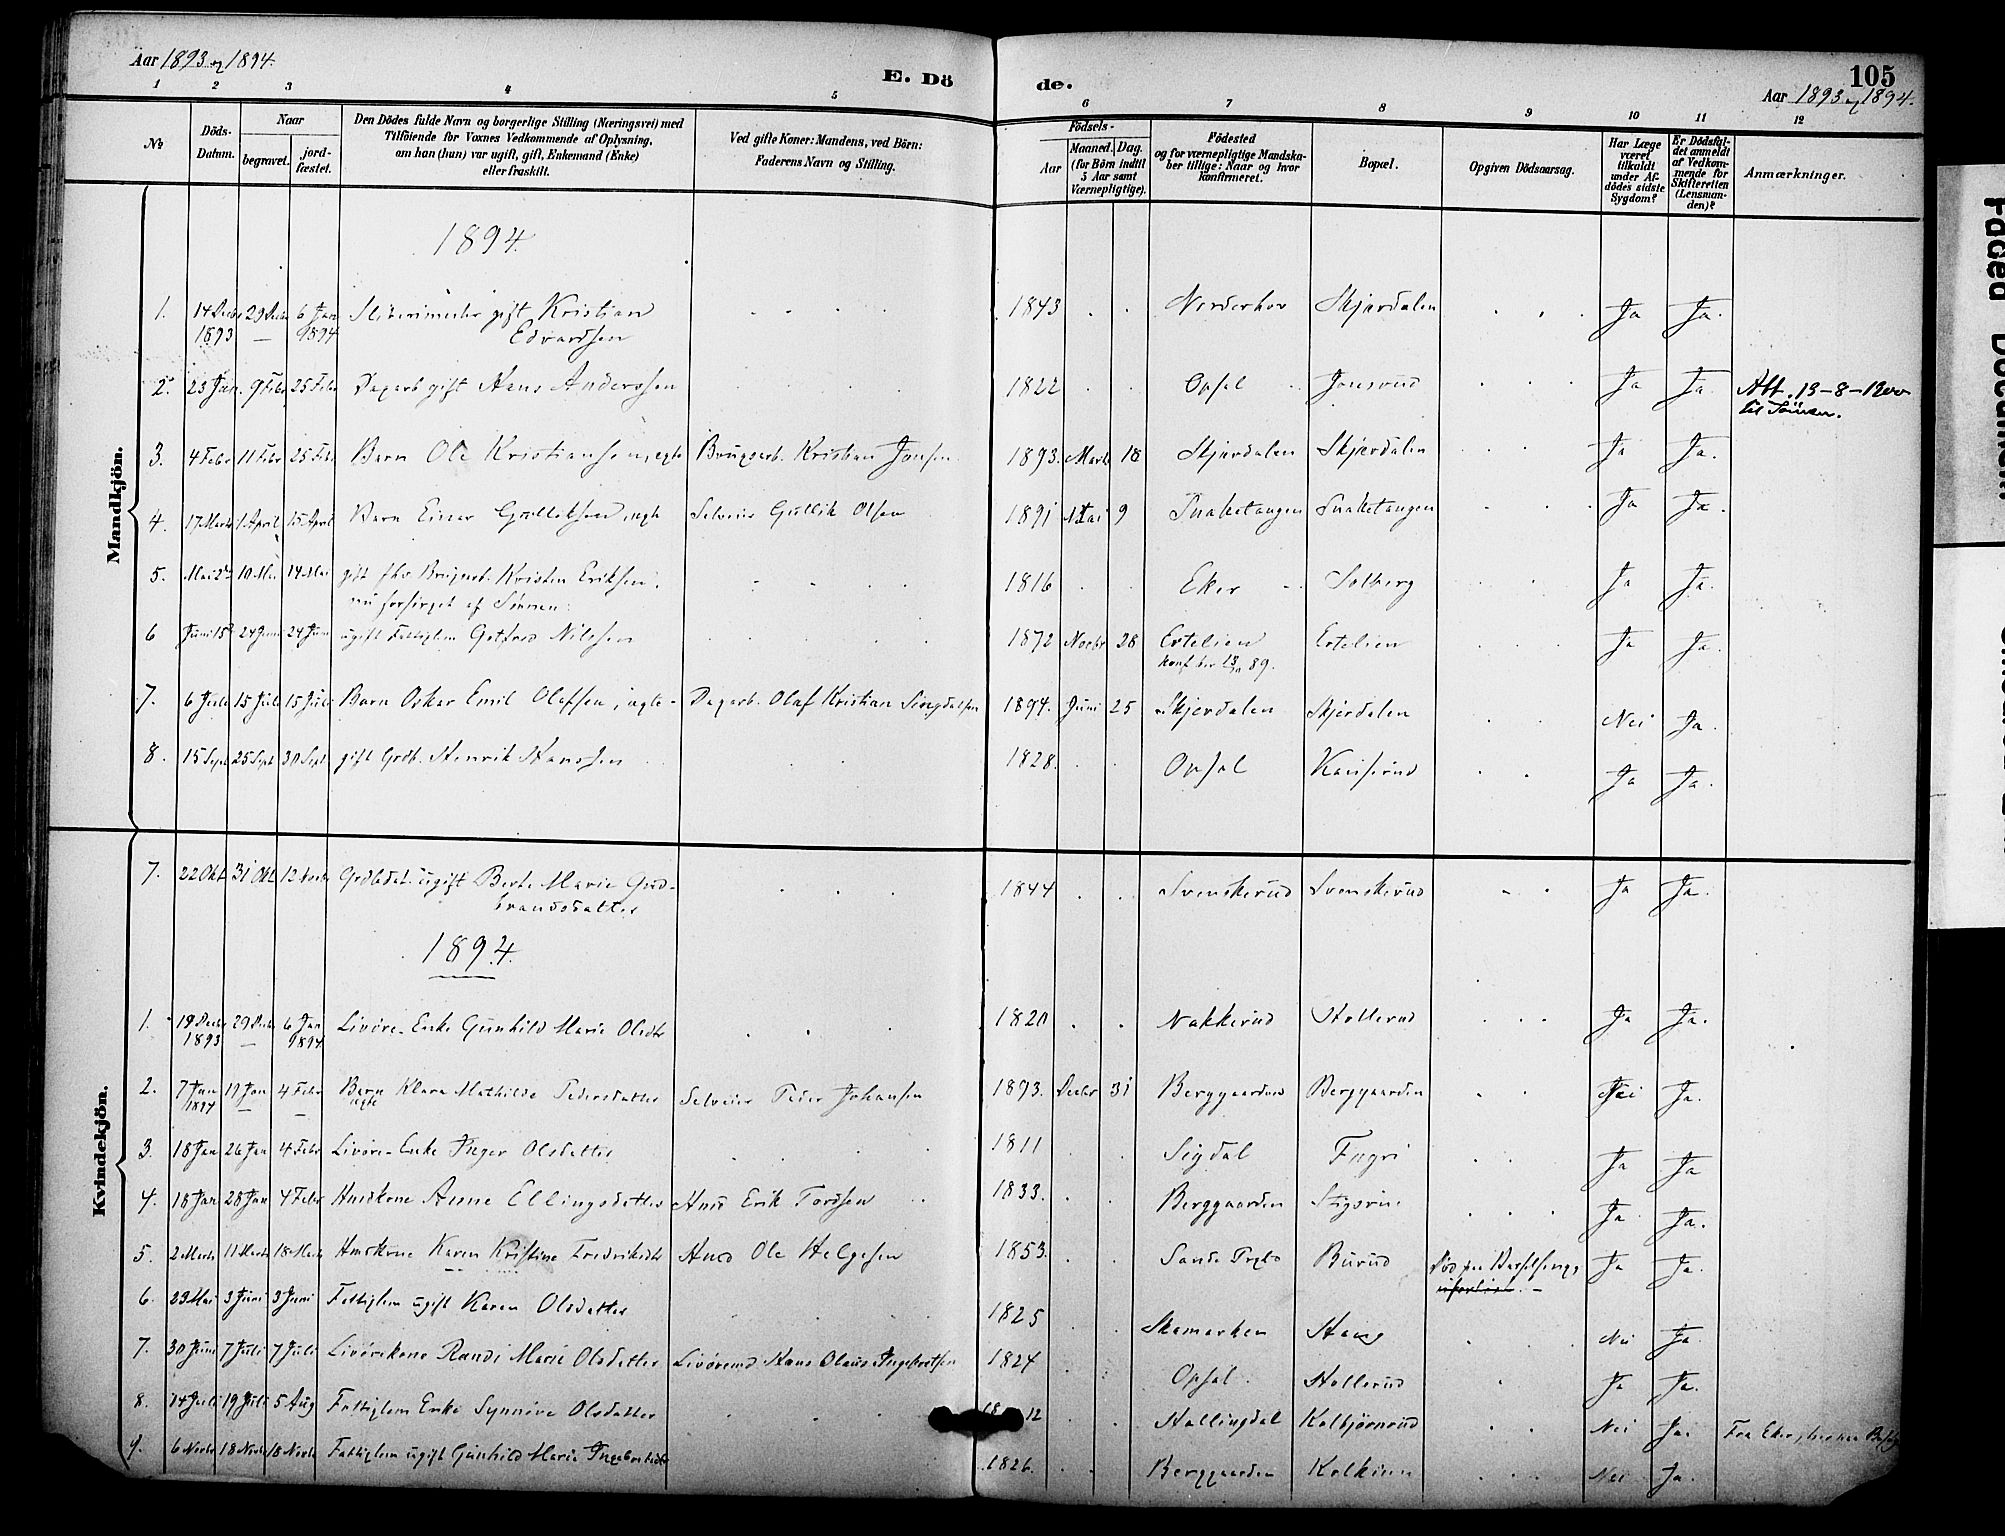 Aar 1893 og 1894.
E. Dö
de.
105
Aar 1893 og 1894.
1 2 3 4 5 6 7 8 9 10 11 12
No
Döds-Datum.
Naar
begravet.
jord-fæstet.
Den Dödes fulde Navn og borgerlige Stilling (Næringsvei) med
Tilföiende for Voxnes Vedkommende af Oplysning,
om han (hun) var ugift, gift, Enkemand (Enke)
eller fraskilt.
Ved gifte Koner: Mandens, ved Börn:
Faderens Navn og Stilling.
Födsels-
Aar
Maaned. Dag.
(for Börn indtil
5 Aar samt
Værnepligtige).
Födested
og for værnepligtige Mandska-
ber tillige: Naar og hvor
konfirmeret.
Bopæl.
Opgiven Dödsaarsag.
Har Læge
været
tilkaldt
under Af-
dödes sidste
Sygdom?
Er Dödsfal-
det anmeldt
af Vedkom-
mende for
Skifteretten
(Lensman-
den)?
Anmærkninger.
Mandkjön.
1894.
1. 14 Decbr 1893 29 Decbr 6 Jan 1894 gift Kristian Edvardsen 1843 Norderhov Skjerdalen Ja Ja.
2. 23 Jan. 9 Febr 25 Febr Dagarb gift Hans Anderssen 1822 Opsal Ja Ja. Att. 13-8-1200
3. 4 Febr 11 Febr 25 Febr Barn Ole Kristiansen, egte Brugsarb. Kristian Jonsen 1893. Marts 18 Skjerdalen Skjerdalen Ja Ja.
4. 17 Marts 1 April 15 April Barn Einar Gulliksen, egte Selveier Gullik Olsen 1891 Mai 9 Snaketangen Snaketangen Ja Ja.
5. Mai 2den 10 Mai 14 Mai gift fhv Brugsarb. Kristen Eriksen,
nu forsörget af Sönnen. 1816 Eker Solberg Ja Ja.
6 Juni 15 24 Juni 24 Juni ugift Fattiglem Gotfred Nilssen 1872 Novbr 28 Ertelien Ertelien Ja Ja.
7. 6 Juli 15 Juli 15 Juli Barn Oskar Emil Olafsen, egte - Dagarb. Olaf Kristian 1894. Juni 25 Skjerdalen Skjerdalen Nei Ja.
8. 15 Sept 25 Sept 30 Sept gift Grdb. Henrik Hanssen 1828. Opsal Ja Ja.
Kvindekjön.
7. 22 Okt 31 Okt 12 Novbr ugift Berte Marie Gud-
brandsdatter 1844 Svenskerud Svenskerud Ja Ja.
1894.
1. 19 Decbr 1893 29 Decbr 6 Jan 1894. Livöre-Enke Gunhild Marie Olsdtr 1820 Nakkerud Hollerud Ja Ja.
2. 7 Jan 1894 19 Jan 4 Febr Barn egte Klara Mathilde Pedersdatter Selveier Peder Johansen 1893. Decbr 31 Berggaarden Berggaarden Nei Ja.
3. 18 Jan 26 Jan 4 Febr Livöre-Enke Inger Olsdatter 1811 Sigdal Ja Ja
4. 18 Jan 28 Jan 4 Febr Hmdkone Anne Ellingsdatter Hmd Erik Tordsen 1833. Berggaarden Ja Ja.
5. 2 Marts 11 Marts 18 Marts Hmdkone Karen Kristine Fredriksdtr Hmd Ole Helgesen 1853. Burud Ja Ja.
6. 23 Mai 3 Juni 3 Juni Fattiglem ugift Karen Olsdatter 1825 Skamarken Haug Nei Ja.
7. 30 Juni 7 Juli 7 Juli Livörekone Randi Marie Olsdatter Livöremd Hans Olaus Ingebretsen 1824 Opsal. Hollerud Ja Ja.
8. 14 Juli 19 Juli 5 Aug Fattiglem Enke Synnöve Olsdatter 12 Hallingdal Kolbjörnrud Nei Ja.
9. 6 Novbr 18 Novbr 18 Novbr Fattiglem ugift Gunhild Marie Ingebretsdtr 1826. Berggaarden Nei Ja.